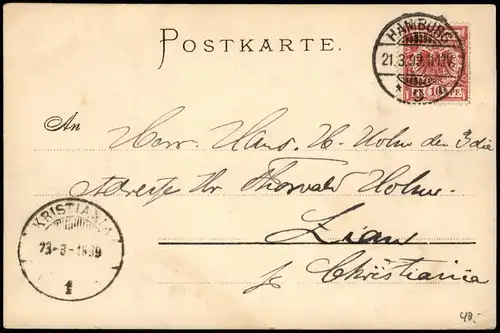 POSTKARTE.
HAMBURG
21.3.99.
* 9 *
An
Herr Hans H. Holm
Adresse Hr Thorvald Holm
Lian
p. Christiania
KRISTIANIA
23-3-1899
1
40.-